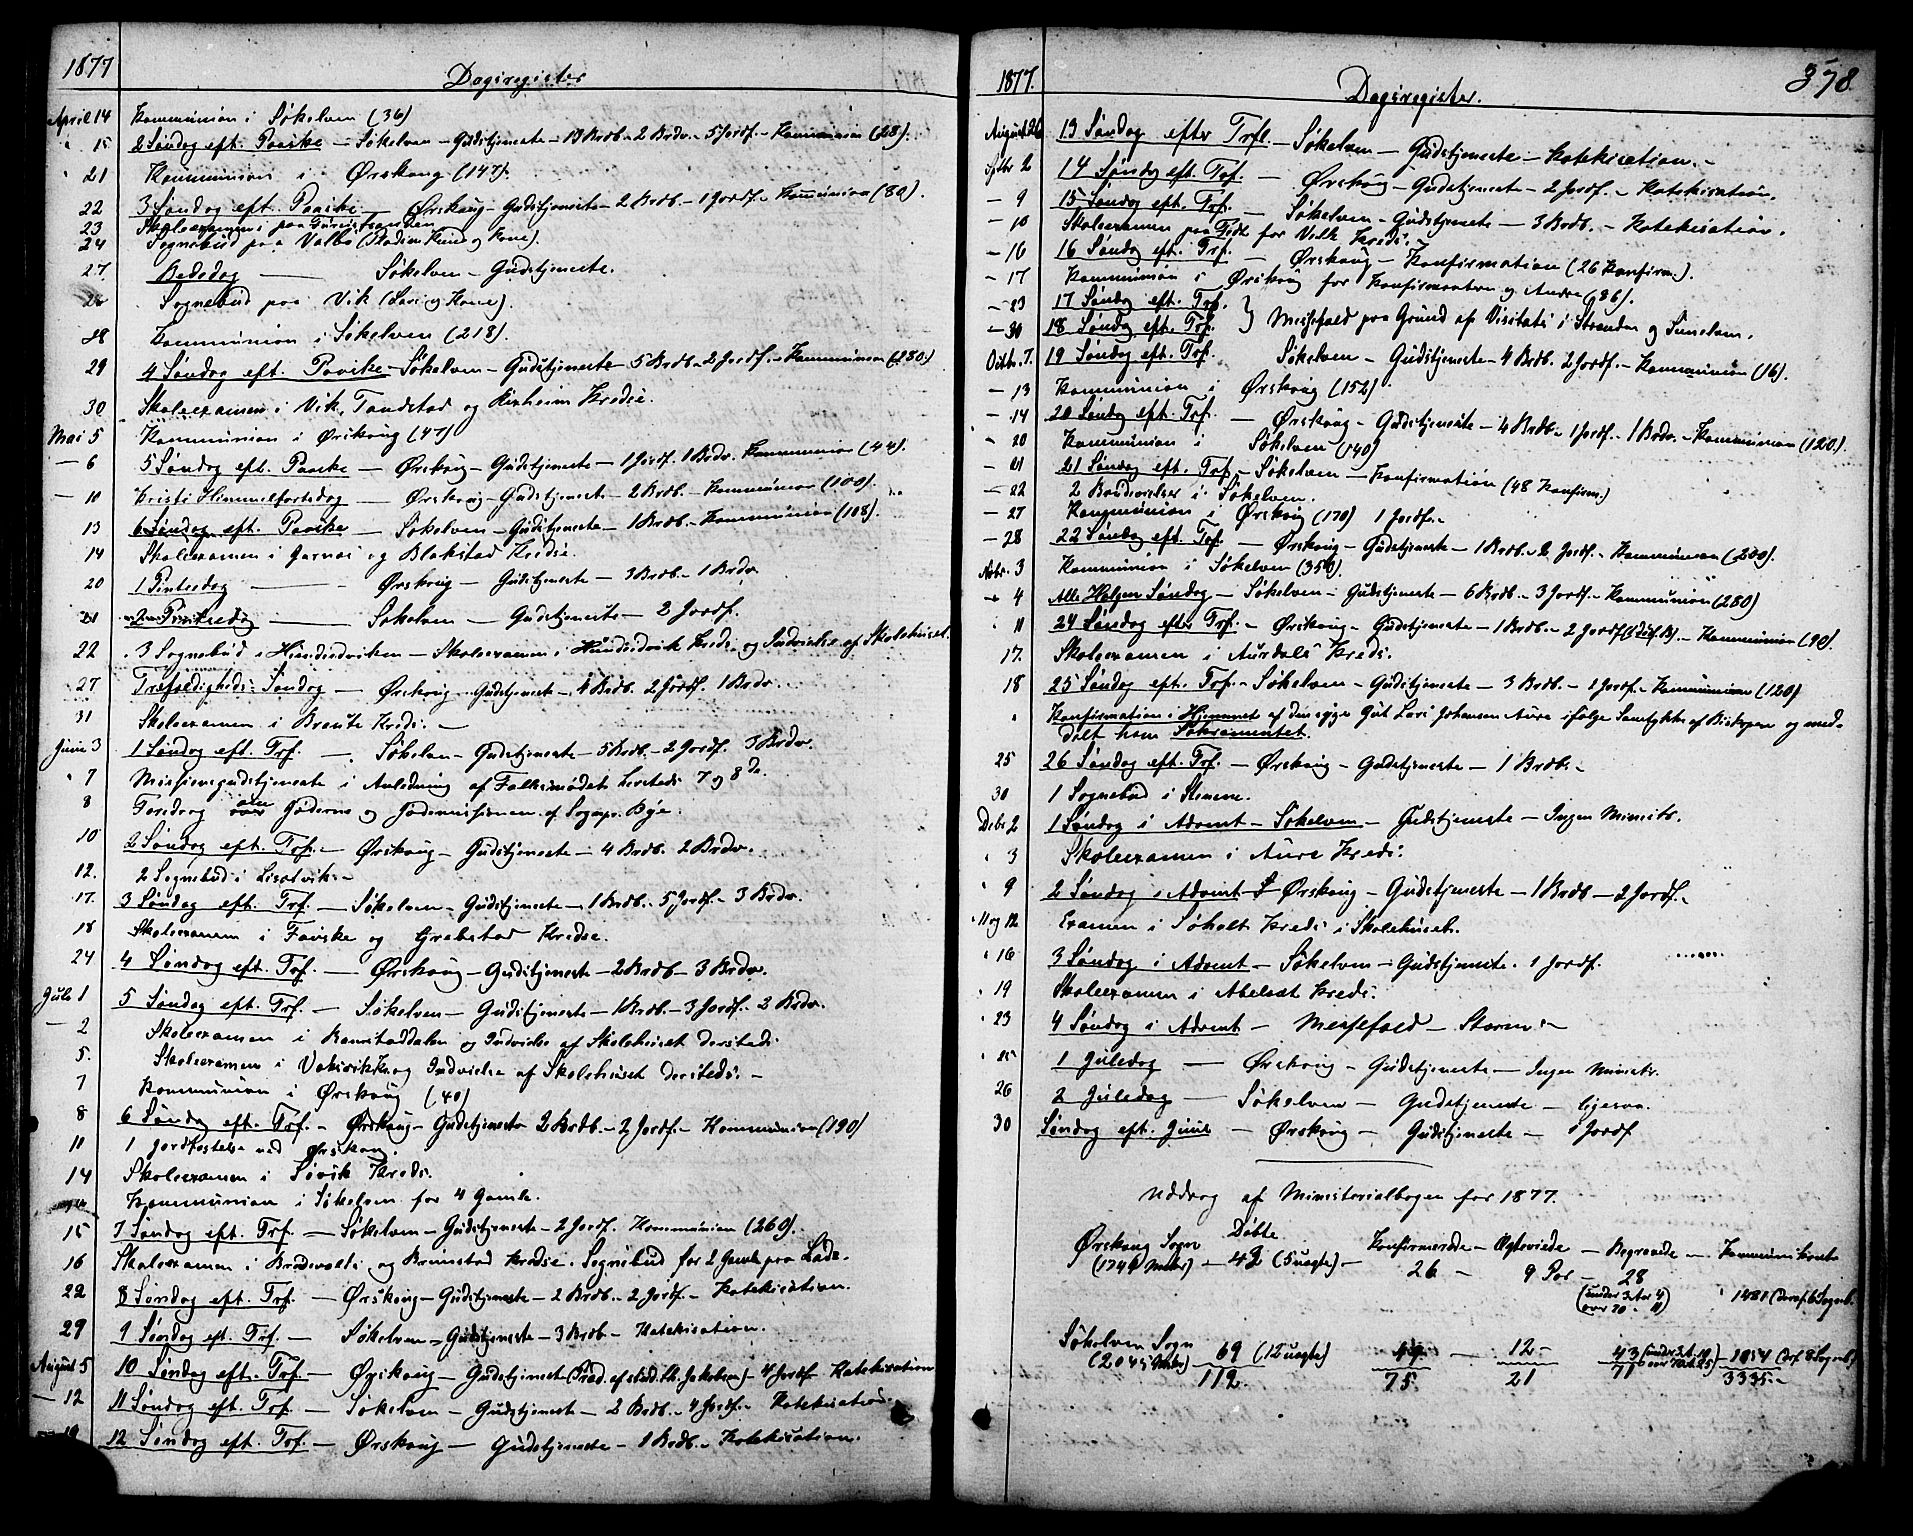 1877
Dagsregister
April 14 Kommunion i Søkelven (36)
" 15 2 Søndag eft. Paaske – Søkelven – Gudstjeneste – 13 Brdb. – 2 Brdv. – 5 Jordf. – Kommunion (28).
" 21 Kommunion i Ørskoug (147).
22 3 Søndag eft. Paaske – Ørskoug – Gudstjeneste – 2 Brdb. – 1 Jordf. – Kommunion (80).
23 Skoleexamen paa
24 Sognebud paa Valbø
27 Bededag – Søkelven – Gudstjeneste.
Sognebud paa Vik (Lars og Kone).
28 Kommunion i Søkelven (218).
29 4 Søndag eft. Paaske – Søkelven – Gudstjeneste – 5 Brdb. – 2 Jordf. – Kommunion (280.)
30 Skoleexamen i Vik, Tandstad og Kredse.
Mai 5 Kommunion i Ørskoug (47)
– 6 5 Søndag eft. Paaske – Ørskoug – Gudstjeneste – 1 Jordf. 1 Brdv. Kommunion (44).
– 10 Kristi Himmelfartsdag – Ørskoug – Gudstjeneste – 2 Brdb. – Kommunion (100).
13 6 Søndag eft. Paaske – Søkelven – Gudstjeneste – 1 Brdb. – Kommunion (108).
14 Skoleexamen i Jarnæs og Blakstad Kredse.
20 1 Pintsedag – Ørskoug – Gudstjeneste – 3 Brdb. – 1 Brdv.
21 2 Pintsedag – Søkelven – Gudstjeneste – 2 Jordf.
22 3 Sognebud i Hundeidviken – Skoleexamen i Hundeidvik Kreds og Indvielse af Skolehuset.
27 Trefoldigheds Søndag – Ørskoug – Gudstjeneste – 4 Brdb. 2 Jordf. 1 Brdv.
31 Skoleexamen i Braute Kreds. –
Juni 3 1 Søndag eft. Trf. – Søkelven – Gudstjeneste – 5 Brdb. – 2 Jordf. 3 Brdv.
" 7 Missionsgudstjeneste i Anledning af Folkemødet hersteds 7 og 8de.
8 Foredrag om Jøderne og Jødemissionen af Sogpr. Bye.
10 2 Søndag eft. Trf. – Ørskoug – Gudstjeneste – 4 Brdb. 2 Brdv.
12. 2 Sognebud i –
17. 3 Søndag eft. Trf. – Søkelven – Gudstjeneste – 1 Brdb. – 5 Jordf. – 3 Brdv.
18 Skoleexamen i Fauske og Grebstad Kredse.
24 4 Søndag eft. Trf. – Ørskoug – Gudstjeneste – 2 Brdb – 3 Brdv.
Juli 1 5 Søndag eft. Trf. – Søkelven – Gudstjeneste – 1 Brdb. – 3 Jordf. – 2 Brdv.
– 2 Skoleexamen i Ramstaddalen og Indvielse af Skolehuset dersteds
5. Skoleexamen i og Indvielse af Skolehuset dersteds. –
7 Kommunion i Ørskoug (40)
8 6 Søndag eft. Trf. – Ørskoug – Gudstjeneste 2 Brdb. – 2 Jordf. – Kommunion (190)
11 1 Jordfæstelse ved Ørskoug.
14 Skoleexamen i Søvik Kreds.
Kommunion i Søkelven for 4 Gamle.
15 7 Søndag eft. Trf. – Søkelven – Gudstjeneste – 2 Jordf. Kommunion (260).
16 Skoleexamen i og Brunstad Kredse. Sognebud for 2 Gamle paa Lade.
22 8 Søndag eft. Trf. – Ørskoug – Gudstjeneste – 2 Brdb. – 2 Jordf. – Katekisation.
29 9 Søndag eft. Trf. – Søkelven – Gudstjeneste – 3 Brdb – Katekisation.
August 5 10 Søndag eft. Trf. – Ørskoug – Gudstjeneste (Præd. af stud. th. Jakobsen) – 4 Jordf. Katekisation
– 12 11 Søndag eft. Trf. – Søkelven – Gudstjeneste – 2 Brdb. – 4 Jordf. – Katekisation.
19 12 Søndag eft. Trf. – Ørskoug – Gudstjeneste – 1 Brdb. – Katekisation.
1877. 378
Dagsregister.
August 26 13 Søndag efter Trf. – Søkelven – Gudstjeneste – Katekisation. –
Sptbr 2 14 Søndag eft. Trf. – Ørskoug – Gudstjeneste – 2 Jordf. – Katekisation.
– 9 15 Søndag eft. Trf. – Søkelven – Gudstjeneste – 3 Brdb. – Katekisation.
– 10 Skoleexamen paa for Velle Kreds.
– 16 16 Søndag eft. Trf. – Ørskoug – Konfirmation (26 Konfirm.).
– 17 Kommunion i Ørskoug for Konfirmanter og Andre (86).
– 23 17 Søndag eft. Trf. } Messefald paa Grund af Visitats i Stranden og Sunelven.
– 30 18 Søndag eft. Trf.
Octbr. 7. 19 Søndag eft. Trf. Søkelven – Gudstjeneste – 4 Brdb. 2 Jordf. – Kommunion (16).
– 13 Kommunion i Ørskoug (152)
– 14 20 Søndag eft. Trf. – Ørskoug – Gudstjeneste – 4 Brdb – 1 Jordf. – 1 Brdv. – Kommunion (120.)
– 20 Kommunion i Søkelven (140)
– 21 21 Søndag eft. Trf – Søkelven – Konfirmation (48 Konfirm.)
– 22 2 Brudevielser i Søkelven.
– 27 Kommunion i Ørskoug (170) 1 Jordf. –
– 28 22 Søndag eft. Trf – Ørskoug – Gudstjeneste – 1 Brdb. – 2 Jordf. – Kommunion (200).
Novbr. 3 Kommunion i Søkelven (350).
– 4 Alle Helgens Søndag – Søkelven – Gudstjeneste – 6 Brdb. – 3 Jordf. – Kommunion (280)
" 11 24 Søndag efter Trf. – Ørskoug – Gudstjeneste – 1 Brdb. – 2 Jordf. – Kommunion (90).
17. Skoleexamen i Aurdals Kreds.
18 25 Søndag eft. Trf. – Søkelven – Gudstjeneste – 3 Brdb. – 1 Jordf. – Kommunion (120)
" Konfirmation i Hjemmet af den syge Gut Lars Johansen Aure ifølge Samtykke af Biskopen og med-
delt ham Sakramentet.
25 26 Søndag eft. Trf. – Ørskoug – Gudstjeneste – 1 Brdb. –
30 1 Sognebud i Stenene.
Debr 2 1 Søndag i Advent – Søkelven – Gudstjeneste – Ingen Ministr.
" 3 Skoleexamen i Aure Kreds.
" 9 2 Søndag i Advent – Ørskoug – Gudstjeneste – 1 Brdb – 2 Jordf. –
" 11 og 12 Examen i Søholt Kreds i Skolehuset.
" 16 3 Søndag i Advent – Søkelven – Gudstjeneste. 1 Jordf.
" 19 Skoleexamen i Abelsæt Kreds.
" 23 4 Søndag i Advent – Messefald – Storm. –
" 25 1 Juledag – Ørskoug – Gudstjeneste – Ingen Ministr.
26 2 Juledag – Søkelven – Gudstjeneste – ligesaa.
30 Søndag eft. Juul – Ørskoug – Gudstjeneste – 1 Jordf.
Uddrag af Ministerialbogen for 1877.
Døbte Konfirmerede – Ægteviede – Begravede – Kommunikante
Ørskoug Sogn – 42 (5 uægte) – 26 – 9 Par – 28
(under 3 Ar 4) 1481 (deraf 6 Sogneb.
(over 70 – 11)
Søkelven Sogn 69 (12 uægte) 49 – 12 – 43 1854 (Drf 8 Sogneb)
112. 75. 21 71 3335. –